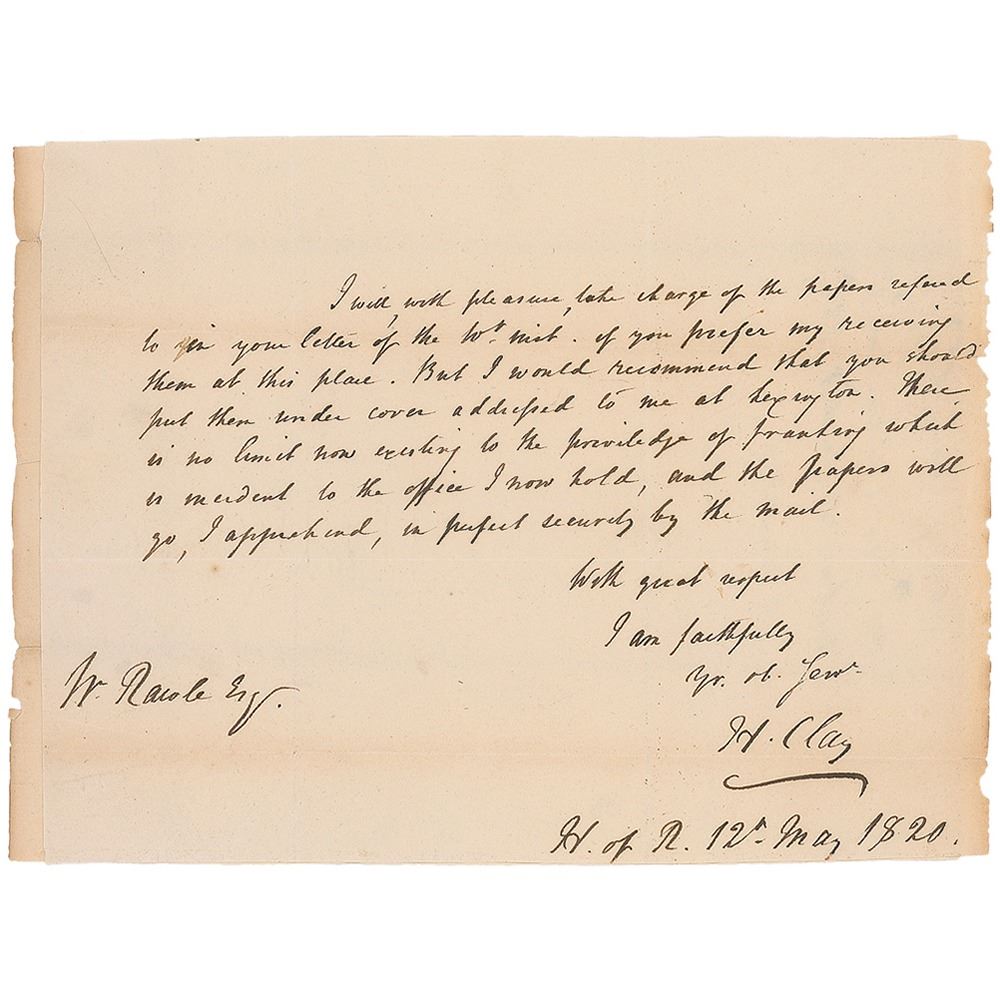 I will, with pleasure, take charge of the papers referred
to in your letter of the 10th. inst. if you prefer my receiving
them at this place. But I would recommend that you should
put them under cover addressed to me at Lexington. There
is no limit now existing to the priviledge of franking which
is incident to the office I now hold, and the papers will
go, I apprehend, in perfect security by the mail.
With great respect
I am faithfully
Yr. ob. Serv.
Wm. Rawle Esq.
H. Clay
H. of R. 12th. May 1820.